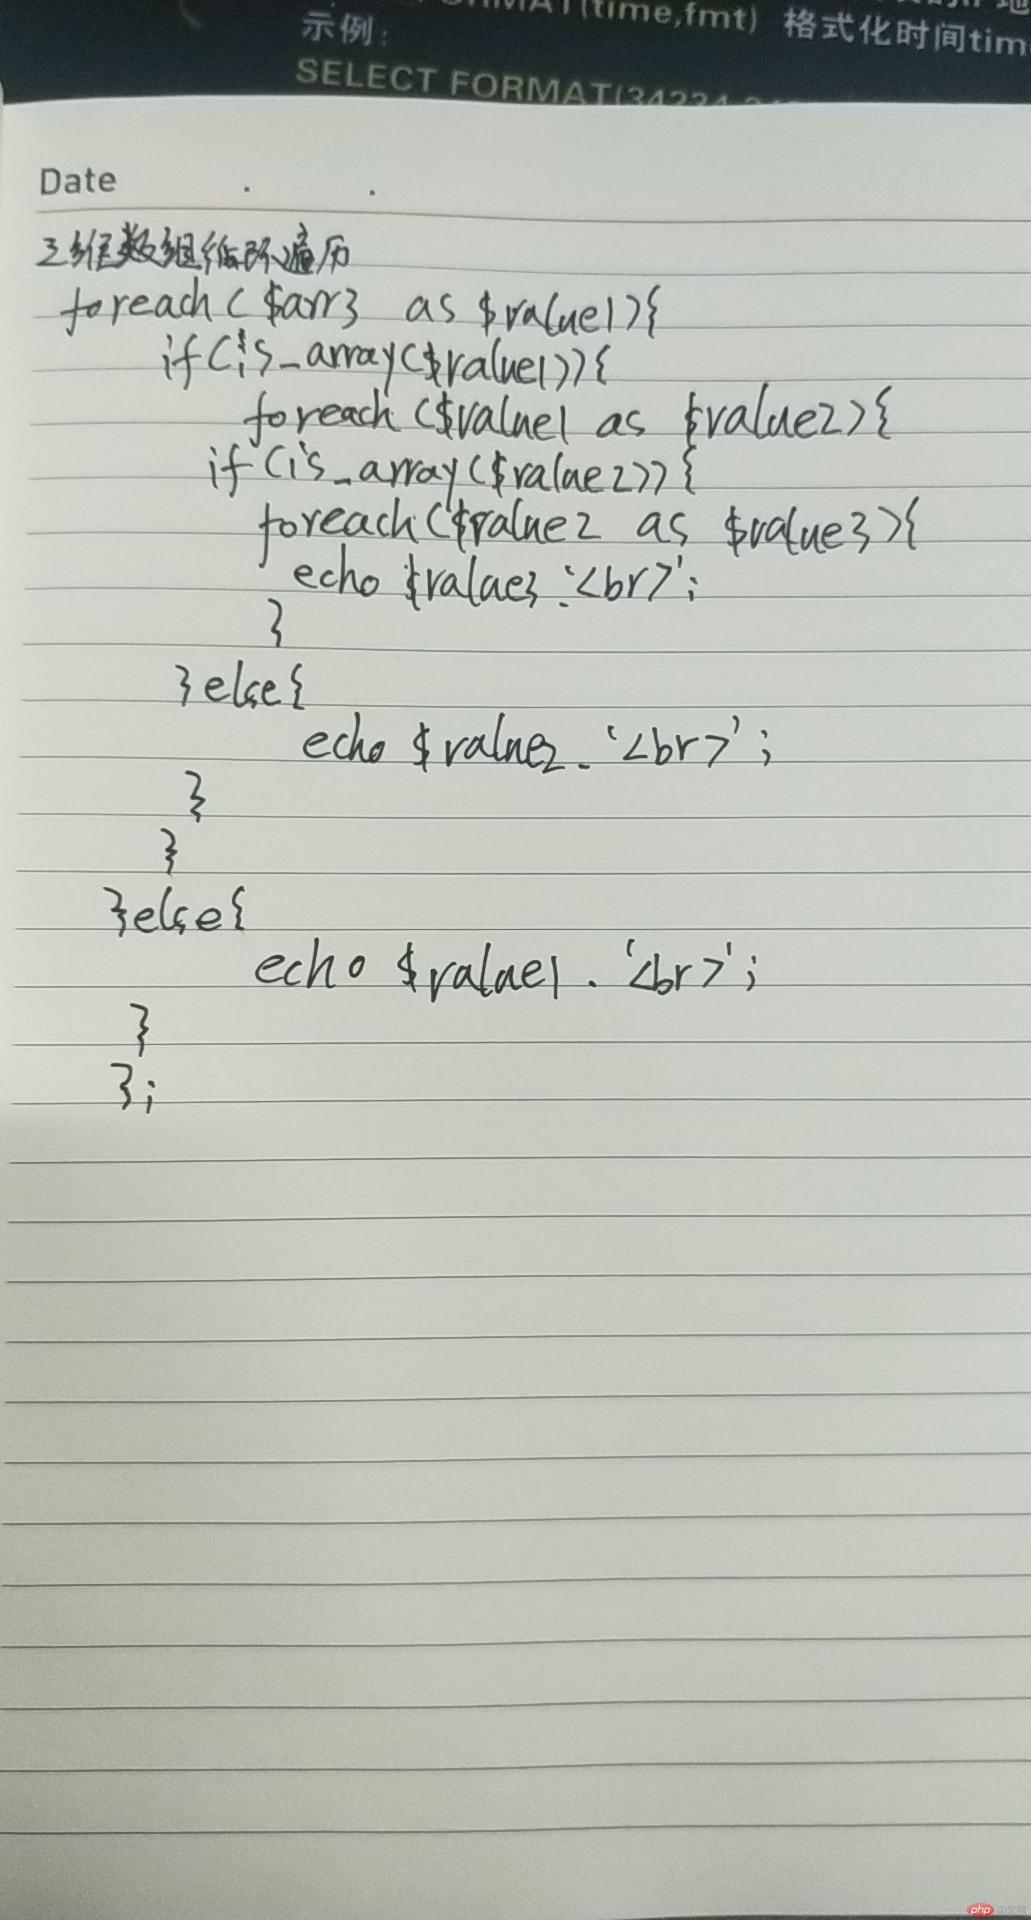 MAT(time,fmt) 格式化时间tim
示例:
SELECT FORMAT(34234
Date
三维数组 遍历
foreach($arr3 as $value1){
if(is_array($value1)){
foreach($value1 as $value2){
if(is_array($value2)){
foreach($value2 as $value3){
echo $value3.'<br>';
}
}else{
echo $value2.'<br>';
}
}
}else{
echo $value1.'<br>';
}
};
php 中文网